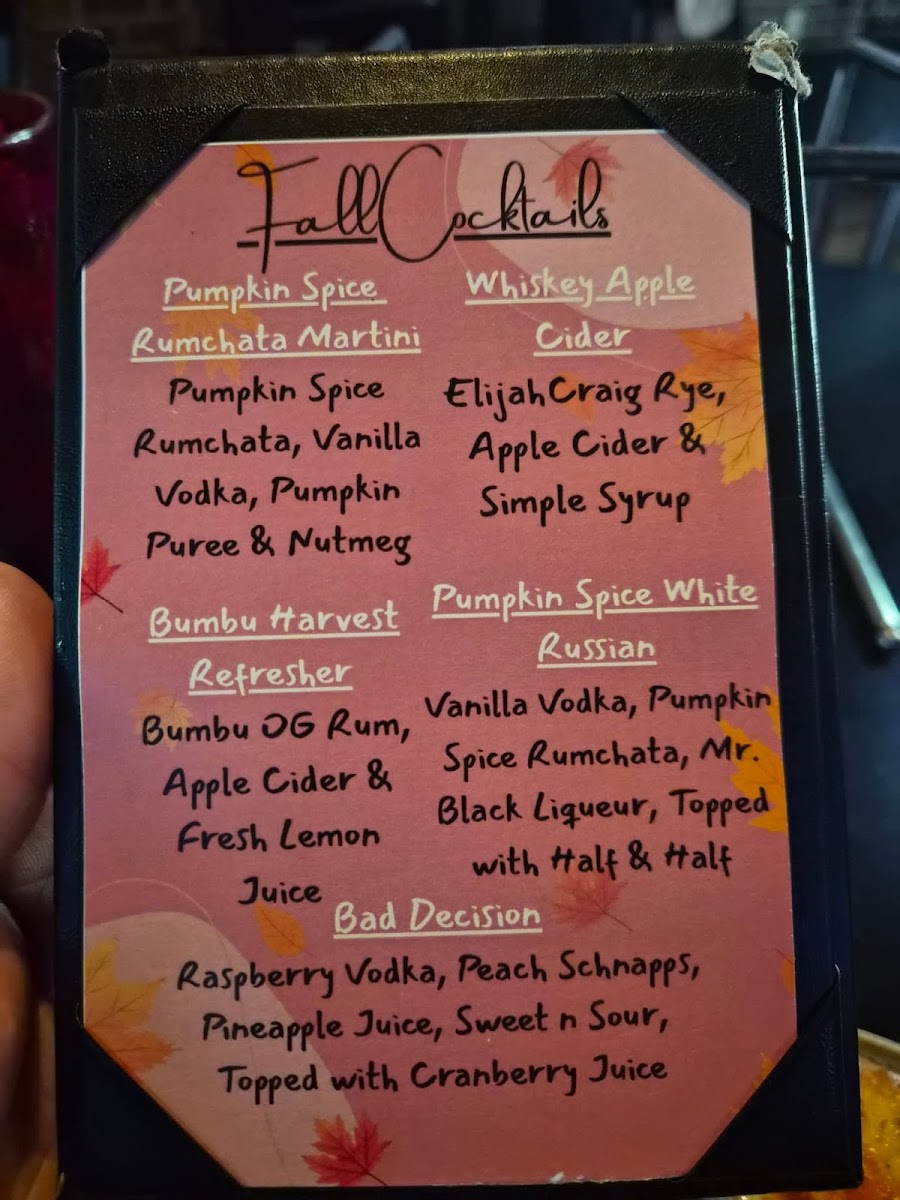 Fall Cocktails
Pumpkin Spice
Rumchata Martini
Pumpkin Spice
Rumchata, Vanilla
Vodka, Pumpkin
Puree & Nutmeg
Whiskey Apple
Cider
Elijah Craig Rye,
Apple Cider &
Simple Syrup
Bumbu Harvest
Refresher
Bumbu OG Rum,
Apple Cider &
Fresh Lemon
Juice
Pumpkin Spice White
Russian
Vanilla Vodka, Pumpkin
Spice Rumchata, Mr.
Black Liqueur, Topped
with Half & Half
Bad Decision
Raspberry Vodka, Peach Schnapps,
Pineapple Juice, Sweet n Sour,
Topped with Cranberry Juice